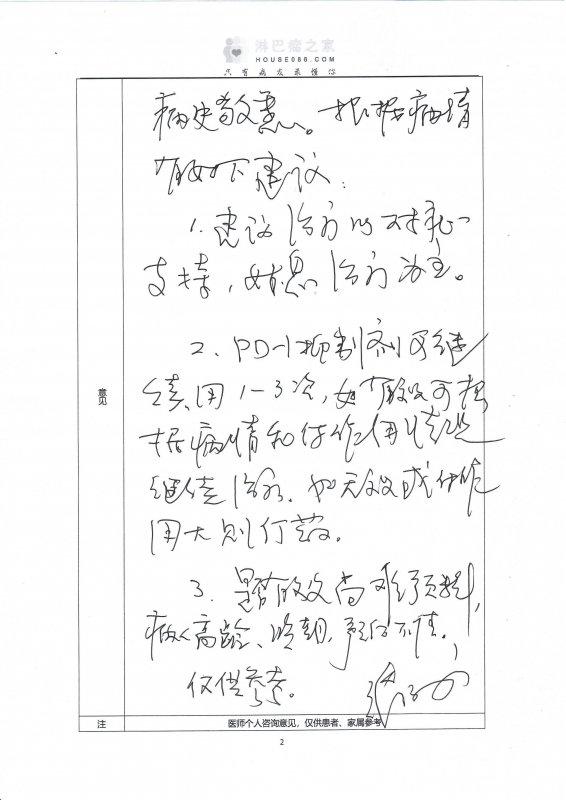 淋巴瘤之家
HOUSE086.COM
只有病友最懂你
病史敬悉。根据病情
有如下建议:
1. 建议治疗以对症
支持,姑息治疗为主。
2. PD-1抑制剂可继
续用1-3次,如有效可根
据病情和付作用情况
继续治疗,如无效或付作
用大则停药。
3. 是否有效尚难预料,
病人高龄、晚期,预后不佳。
仅供参考。
意见
注
医师个人咨询意见,仅供患者、家属参考
2